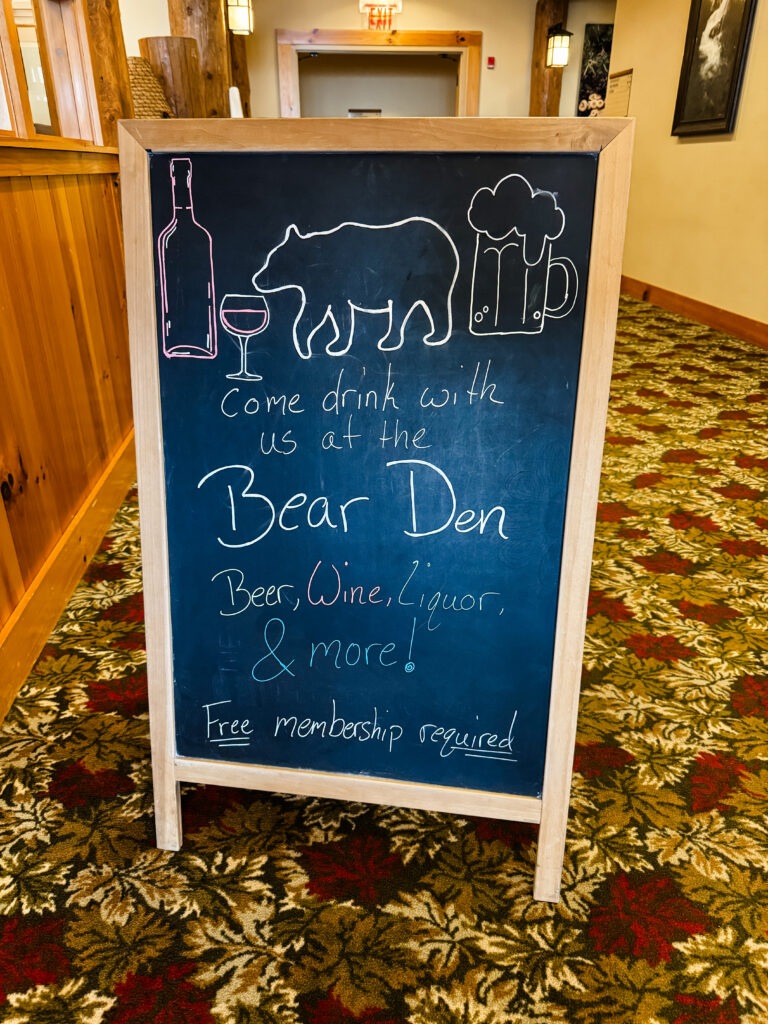 EXIT
Come drink with
us at the
Bear Den
Beer, Wine, Liquor,
& more!
Free membership required